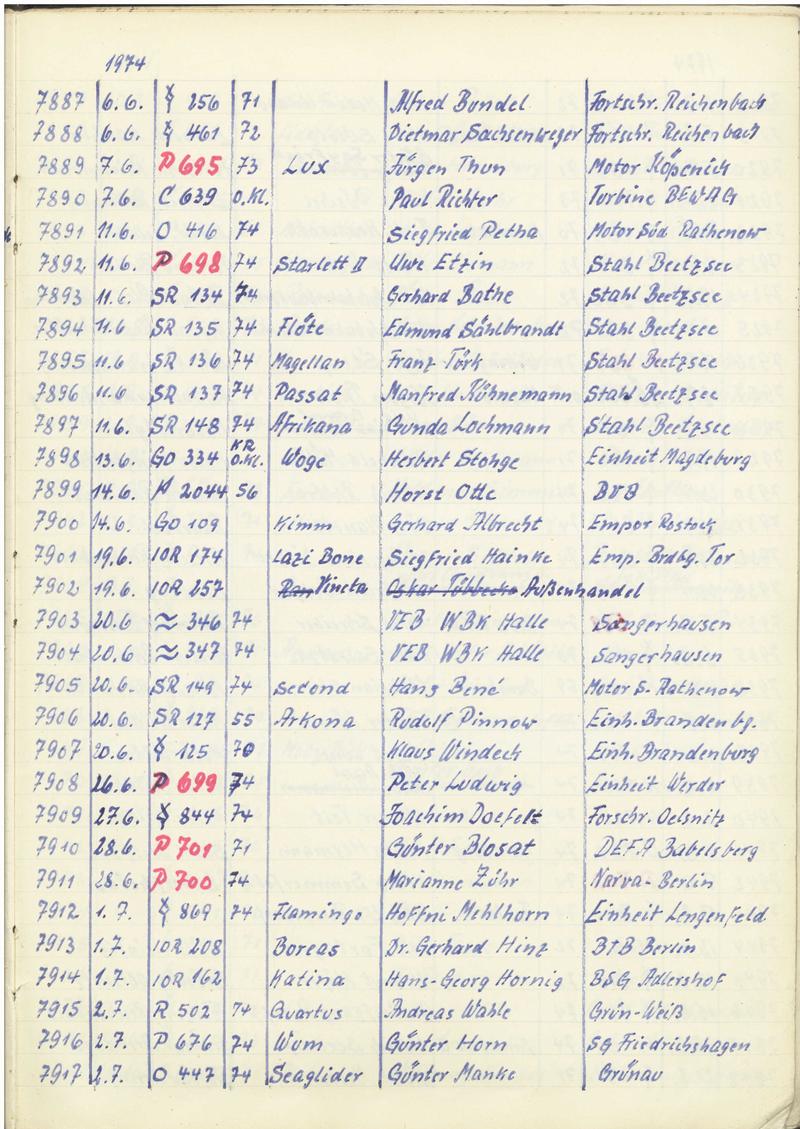 1974
7887 6.6. 256 71 Alfred Bundel Fortschr. Reichenbach
7888 6.6. 461 72 Dietmar Sachsenweger Fortschr. Reichenbach
7889 7.6. P 695 73 Lux Jürgen Thun Motor Köpenick
7890 7.6. C 639 o.Kl. Paul Richter Turbine BEWAG
7891 11.6. O 416 74 Siegfried Petha Motor Süd Rathenow
7892 11.6. P 698 74 Starlett II Uwe Etzin Stahl Beetzsee
7893 11.6. SR 134 74 Gerhard Bathe Stahl Beetzsee
7894 11.6 SR 135 74 Flöte Edmund Sählbrandt Stahl Beetzsee
7895 11.6 SR 136 74 Magellan Franz Türk Stahl Beetzsee
7896 11.6 SR 137 74 Passat Manfred Kühnemann Stahl Beetzsee
7897 11.6. SR 148 74 Afrikana Gunda Lochmann Stahl Beetzsee
7898 13.6. GO 334 KR o.Kl. Woge Herbert Stohge Einheit Magdeburg
7899 14.6. 2044 56 Horst Otte BVB
7900 14.6. GO 109 Kimm Gerhard Albrecht Empor Rostock
7901 19.6. 10R 174 Lazi Bone Siegfried Hainke Emp. Brdbg. Tor
7902 19.6. 10R 257 Ran Vineta Oskar Tübbecke Außenhandel
7903 20.6 ≈ 346 74 VEB WBK Halle Sangerhausen
7904 20.6 ≈ 347 74 VEB WBK Halle Sangerhausen
7905 20.6. SR 149 74 Second Hans Bené Motor S. Rathenow
7906 20.6. SR 127 55 Arkona Rudolf Pinnow Einh. Brandenbg.
7907 20.6. 125 70 Klaus Windeck Einh. Brandenburg
7908 26.6. P 699 74 Peter Ludwig Einheit Werder
7909 27.6. 844 74 Joachim Doefelt Forschr. Oelsnitz
7910 28.6. P 701 71 Günter Blosat DEFA Babelsberg
7911 28.6. P 700 74 Marianne Zühr Narva-Berlin
7912 1.7. 869 74 Flamingo Hoffni Mehlhorn Einheit Lengenfeld
7913 1.7. 10R 208 Boreas Dr. Gerhard Hinz BTB Berlin
7914 1.7. 10R 162 Katina Hans-Georg Hornig BSG Adlershof
7915 2.7. R 502 74 Quartus Andreas Wahle Grün-Weiß
7916 2.7. P 676 74 Wum Günter Horn SG Friedrichshagen
7917 2.7. O 447 74 Seaglider Günter Manke Grünau